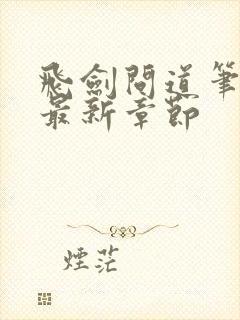 飛劍問道筆
最新章節
煙茫